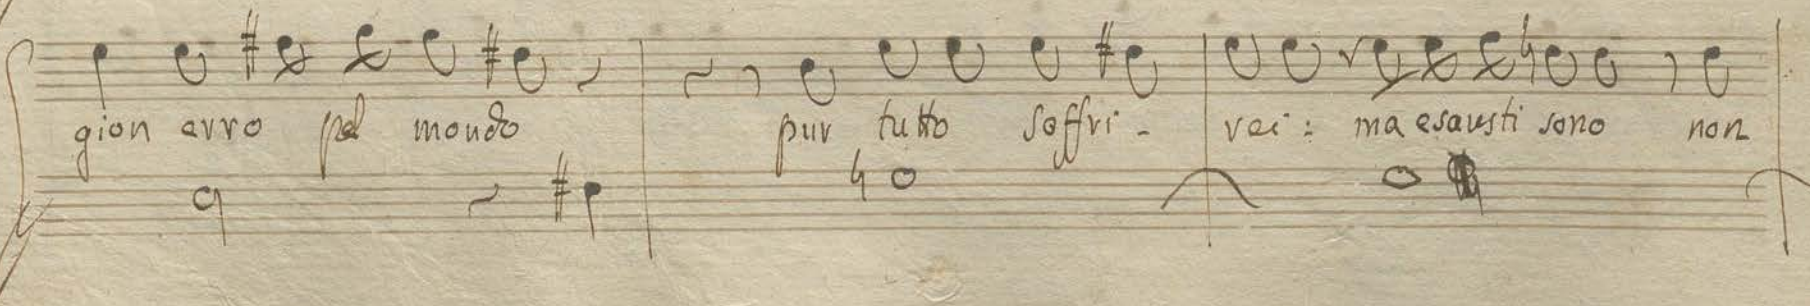 gion avro pel mondo pur tutto soffri - rei : ma esausti sono non